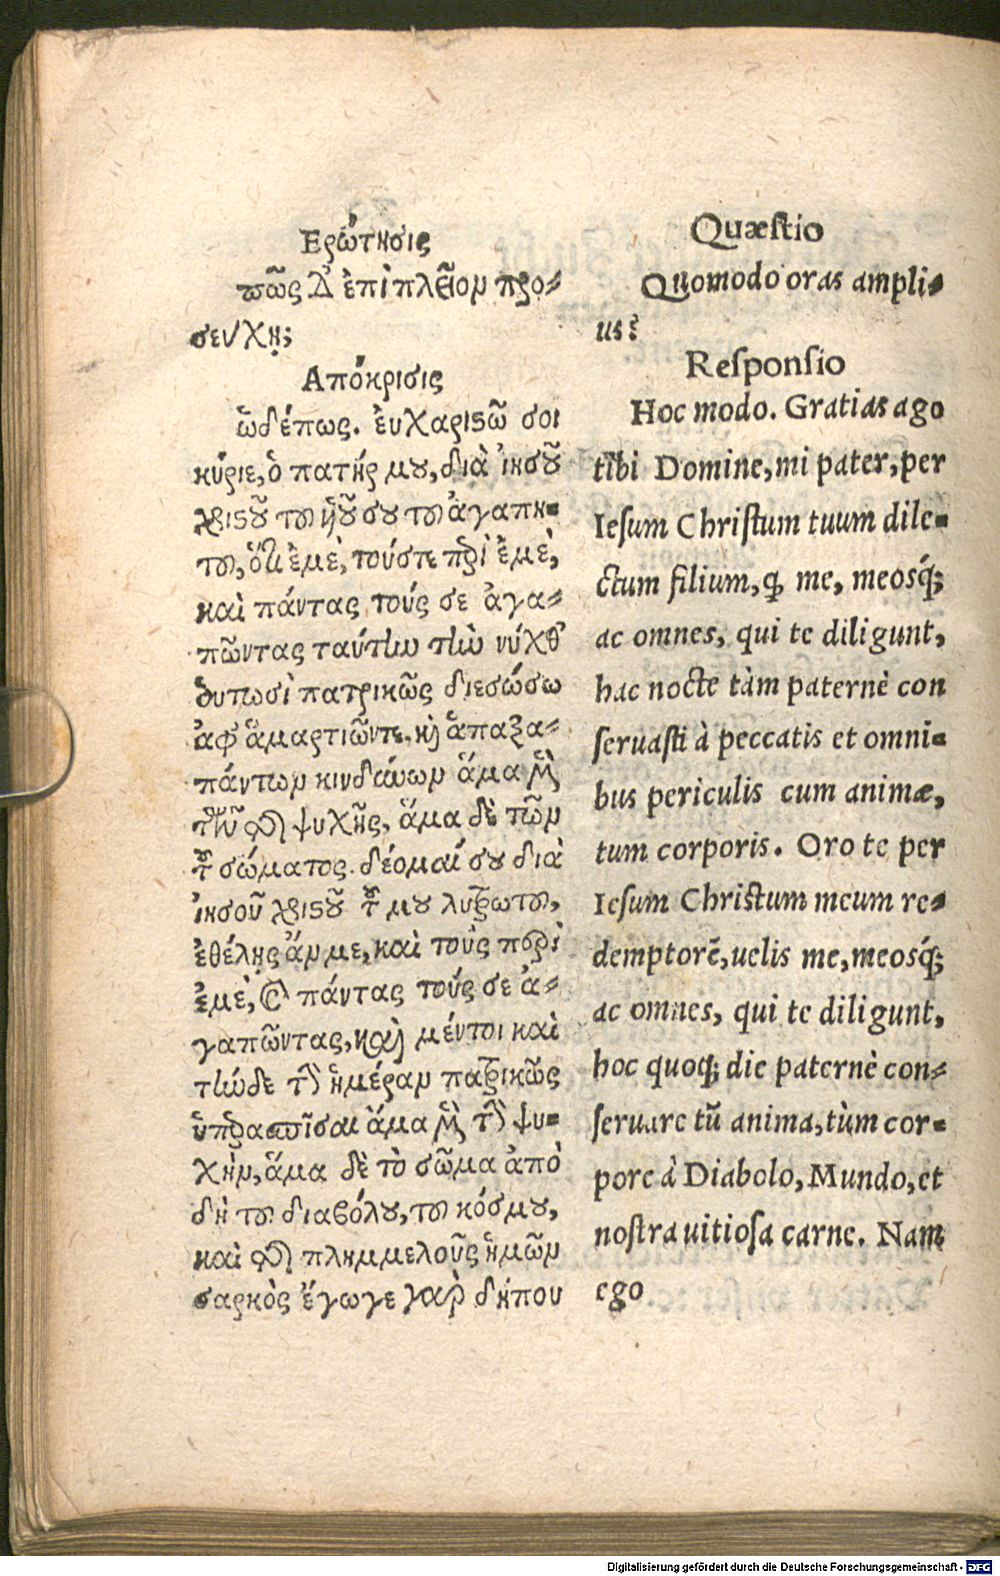 Ερώτησις
πῶς δ' ἐπὶ πλεῖον προ-
σεύχῃ;
Απόκρισις
ὧδέ πως. εὐχαριστῶ σοι
κύριε, ὁ πατήρ μου, διὰ ἰησοῦ
χριστοῦ τοῦ ὑοῦ σου τοῦ ἀγαπη-
τοῦ, ὅτι ἐμὲ, τούς τε περὶ ἐμὲ,
καὶ πάντας τούς σε ἀγα-
πῶντας ταύτην τὴν νύχθ'
πατρικῶς διεσώσω
ἀφ' ἁμαρτιῶντε, καὶ ἁπαξα-
πάντων κινδύνων ἅμα μὲν
τῆς ψυχῆς, ἅμα δὲ τῶν
τοῦ σώματος. δέομαί σου διὰ
ἰησοῦ χριστοῦ τοῦ μου λυτρωτοῦ,
ἐθέλῃς ἄν με, καὶ τοὺς περὶ
ἐμὲ, καὶ πάντας τούς σε ἀ-
γαπῶντας, καὶ μέντοι καὶ
τήνδε τὴν ἡμέραν πατρικῶς
ὑπερασπίσαι ἅμα μὲν τὴν ψυ-
χὴν, ἅμα δὲ τὸ σῶμα ἀπὸ
δὴ τοῦ διαβόλου, τοῦ κόσμου,
καὶ τῆς πλημμελοῦς ἡμῶν
σαρκὸς ἔγωγε γὰρ δήπου
Quæstio
Quomodo oras ampli-
us?
Responsio
Hoc modo. Gratias ago
tibi Domine, mi pater, per
Iesum Christum tuum dile-
ctum filium, ꝙ me, meosq́;
ac omnes, qui te diligunt,
hac nocte tàm paternè con
seruasti à peccatis et omni-
bus periculis cum animæ,
tum corporis. Oro te per
Iesum Christum meum re-
demptorē, uelis me, meosq́;
ac omnes, qui te diligunt,
hoc quoq; die paternè con-
seruare tū anima, tùm cor-
pore à Diabolo, Mundo, et
nostra uitiosa carne. Nam
ego
Digitalisierung gefördert durch die Deutsche Forschungsgemeinschaft - DFG